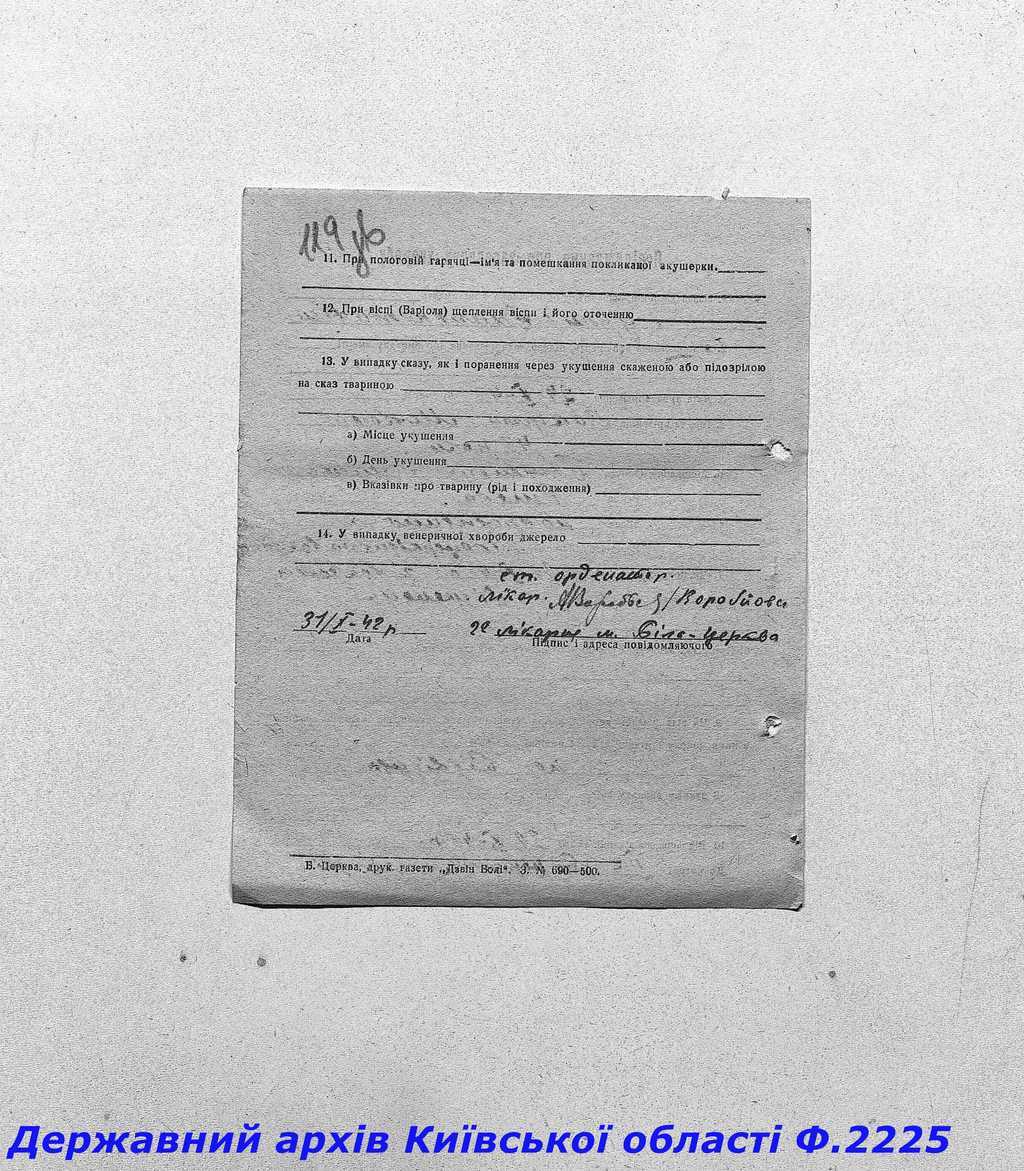 119 зв
11. При пологовій гарячці—ім'я та помешкання покликаної акушерки.
12. При віспі (Варіоля) щеплення віспи і його оточенню
13. У випадку сказу, як і поранення через укушення скаженою або підозрілою
на сказ твариною
а) Місце укушення
б) День укушення
в) Вказівки про тварину (рід і походження)
14. У випадку венеричної хвороби джерело
ст. орденатор.
лікар. /Воробйова
31/X-42 р 2о лікарні м. Біла-Церква
Дата Підпис і адреса повідомляючого
Б. Церква, друк. газети „Дзвін Волі". З. № 690—500.
Державний архів Київської області Ф.2225